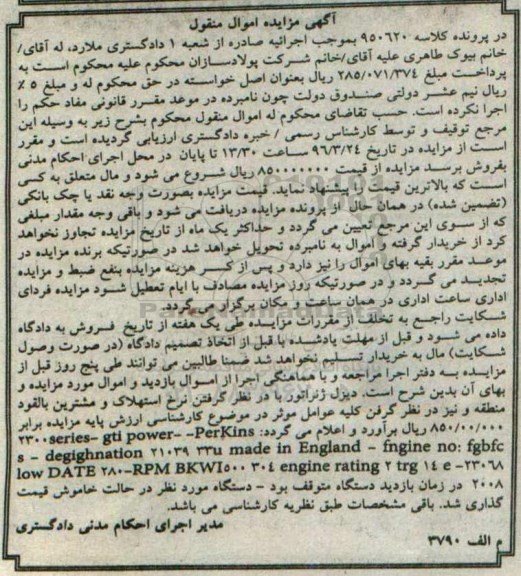 آگهی مزایده اموال منقول
در پرونده کلاسه ۹۵۰۶۲۰ بموجب اجرائیه صادره از شعبه ۱ دادگستری ملارد، له آقای/
خانم بیوک طاهری علیه آقای/خانم شرکت پولادسازان محکوم علیه محکوم است به
پرداخت مبلغ ۲۸۵/۰۷۱/۳۷۴ ریال بعنوان اصل خواسته در حق محکوم له و مبلغ ۵٪
ریال نیم عشر دولتی صندوق دولت چون نامبرده در موعد مقرر قانونی مفاد حکم را
اجرا نکرده است. حسب تقاضای محکوم له اموال منقول محکوم بشرح زیر به وسیله این
مرجع توقیف و توسط کارشناس رسمی / خبره دادگستری ارزیابی گردیده است و مقرر
است از مزایده در تاریخ ۹۶/۳/۲۴ ساعت ۱۳/۳۰ تا پایان در محل اجرای احکام مدنی
بفروش برسد مزایده از قیمت ۸۵۰۰۰۰۰۰۰ ریال شروع می شود و مال متعلق به کسی
است که بالاترین قیمت را پیشنهاد نماید. قیمت مزایده بصورت وجه نقد یا چک بانکی
(تضمین شده) در همان حال از پرونده مزایده دریافت می شود و باقی وجه مقدار مبلغی
که از سوی این مرجع تعیین می گردد و حداکثر یک ماه از تاریخ مزایده تجاوز نخواهد
کرد از خریدار گرفته و اموال به نامبرده تحویل خواهد شد در صورتیکه برنده مزایده در
موعد مقرر بقیه بهای اموال را نیز دارد و پس از کسر هزینه مزایده بنفع ضبط و مزایده
تجدید می گردد و در صورتیکه روز مزایده مصادف با ایام تعطیل شود مزایده فردای
اداری ساعت اداری در همان ساعت و مکان برگزار می گردد.
شکایت راجع به تخلف از مقررات مزایده طی یک هفته از تاریخ فروش به دادگاه
داده می شود و قبل از مهلت یادشده یا قبل از اتخاذ تصمیم دادگاه (در صورت وصول
شکایت) مال به خریدار تسلیم نخواهد شد ضمنا طالبین می توانند طی پنج روز قبل از
مزایده به دفتر اجرا مراجعه و با هماهنگی اجرا از اموال بازدید و اموال مورد مزایده و
بهای آن بدین شرح است. دیزل ژنراتور با در نظر گرفتن نرخ استهلاک و مشترین بالقود
منطقه و نیز در نظر گرفن کلیه عوامل موثر در موضوع کارشناسی ارزش پایه مزایده برابر
۸۵۰/۰۰/۰۰۰ ریال برآورد و اعلام می گردد: ۲۳۰۰series- gti power- -PerKins
s - degighnation ۲۱۰۳۹ ۳۳u made in England - fngine no: fgbfc
low DATE ۲۸۰-RPM BKWI۵۰۰ ۳۰۴ engine rating ۲ trg ۱۴ e -۲۳۰۶۸
۲۰۰۸ در زمان بازدید دستگاه متوقف بود - دستگاه مورد نظر در حالت خاموش قیمت
گذاری شد. باقی مشخصات طبق نظریه کارشناسی می باشد.
مدیر اجرای احکام مدنی دادگستری
م الف ۳۷۹۰